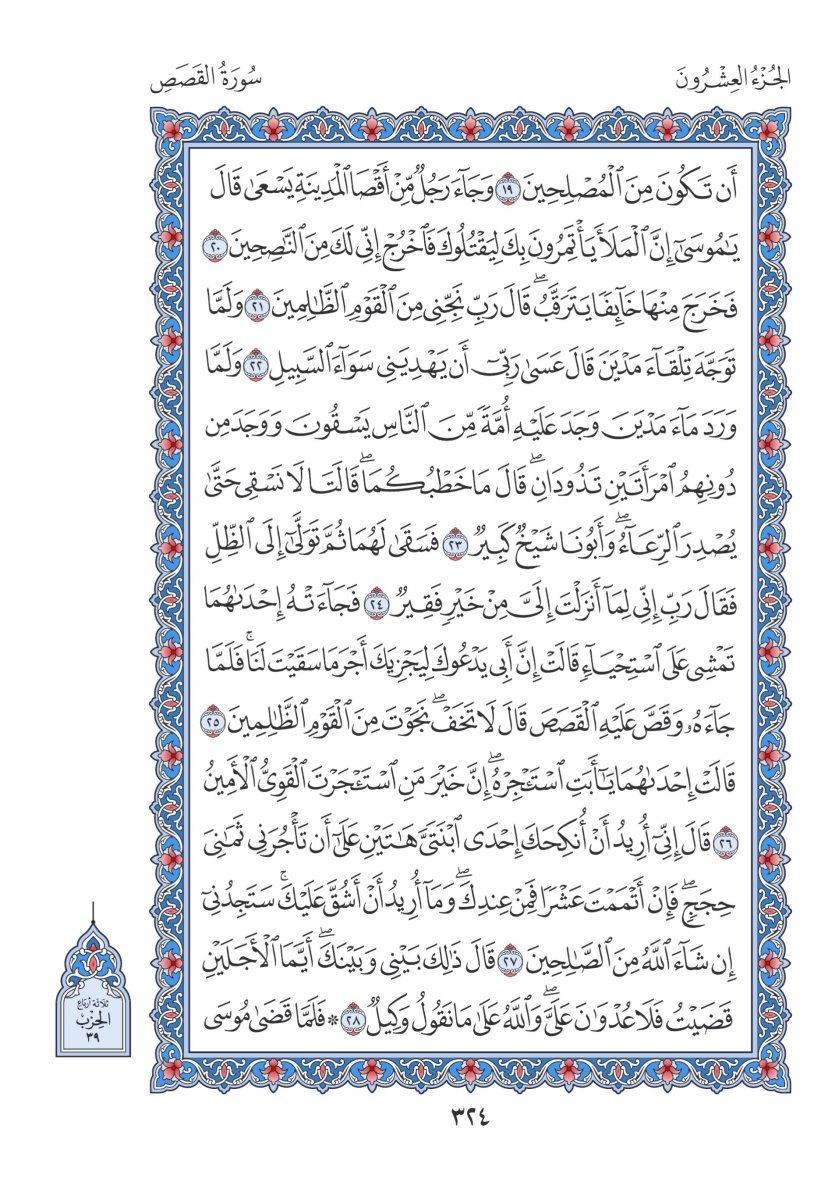 الجُزْءُ العِشْرُونَ
سُورَةُ القَصَصِ
أَن تَكُونَ مِنَ ٱلْمُصْلِحِينَ ١٩ وَجَآءَ رَجُلٌ مِّنْ أَقْصَا ٱلْمَدِينَةِ يَسْعَىٰ قَالَ
يَٰمُوسَىٰٓ إِنَّ ٱلْمَلَأَ يَأْتَمِرُونَ بِكَ لِيَقْتُلُوكَ فَٱخْرُجْ إِنِّي لَكَ مِنَ ٱلنَّٰصِحِينَ ٢٠
فَخَرَجَ مِنْهَا خَآئِفًا يَتَرَقَّبُۖ قَالَ رَبِّ نَجِّنِي مِنَ ٱلْقَوْمِ ٱلظَّٰلِمِينَ ٢١ وَلَمَّا
تَوَجَّهَ تِلْقَآءَ مَدْيَنَ قَالَ عَسَىٰ رَبِّيٓ أَن يَهْدِيَنِي سَوَآءَ ٱلسَّبِيلِ ٢٢ وَلَمَّا
وَرَدَ مَآءَ مَدْيَنَ وَجَدَ عَلَيْهِ أُمَّةً مِّنَ ٱلنَّاسِ يَسْقُونَ وَوَجَدَ مِن
دُونِهِمُ ٱمْرَأَتَيْنِ تَذُودَانِۖ قَالَ مَا خَطْبُكُمَاۖ قَالَتَا لَا نَسْقِي حَتَّىٰ
يُصْدِرَ ٱلرِّعَآءُۖ وَأَبُونَا شَيْخٌ كَبِيرٌ ٢٣ فَسَقَىٰ لَهُمَا ثُمَّ تَوَلَّىٰٓ إِلَى ٱلظِّلِّ
فَقَالَ رَبِّ إِنِّي لِمَآ أَنزَلْتَ إِلَيَّ مِنْ خَيْرٍ فَقِيرٌ ٢٤ فَجَآءَتْهُ إِحْدَىٰهُمَا
تَمْشِي عَلَى ٱسْتِحْيَآءٍ قَالَتْ إِنَّ أَبِي يَدْعُوكَ لِيَجْزِيَكَ أَجْرَ مَا سَقَيْتَ لَنَاۚ فَلَمَّا
جَآءَهُۥ وَقَصَّ عَلَيْهِ ٱلْقَصَصَ قَالَ لَا تَخَفْۖ نَجَوْتَ مِنَ ٱلْقَوْمِ ٱلظَّٰلِمِينَ ٢٥
قَالَتْ إِحْدَىٰهُمَا يَٰٓأَبَتِ ٱسْتَـْٔجِرْهُۖ إِنَّ خَيْرَ مَنِ ٱسْتَـْٔجَرْتَ ٱلْقَوِيُّ ٱلْأَمِينُ
٢٦ قَالَ إِنِّيٓ أُرِيدُ أَنْ أُنكِحَكَ إِحْدَى ٱبْنَتَيَّ هَٰتَيْنِ عَلَىٰٓ أَن تَأْجُرَنِي ثَمَٰنِيَ
حِجَجٍۖ فَإِنْ أَتْمَمْتَ عَشْرًا فَمِنْ عِندِكَۖ وَمَآ أُرِيدُ أَنْ أَشُقَّ عَلَيْكَۚ سَتَجِدُنِيٓ
إِن شَآءَ ٱللَّهُ مِنَ ٱلصَّٰلِحِينَ ٢٧ قَالَ ذَٰلِكَ بَيْنِي وَبَيْنَكَۖ أَيَّمَا ٱلْأَجَلَيْنِ
قَضَيْتُ فَلَا عُدْوَٰنَ عَلَيَّۖ وَٱللَّهُ عَلَىٰ مَا نَقُولُ وَكِيلٌ ٢٨ ۞ فَلَمَّا قَضَىٰ مُوسَى
ثلاثة أرباع
الحِزْب
٣٩
٣٢٤